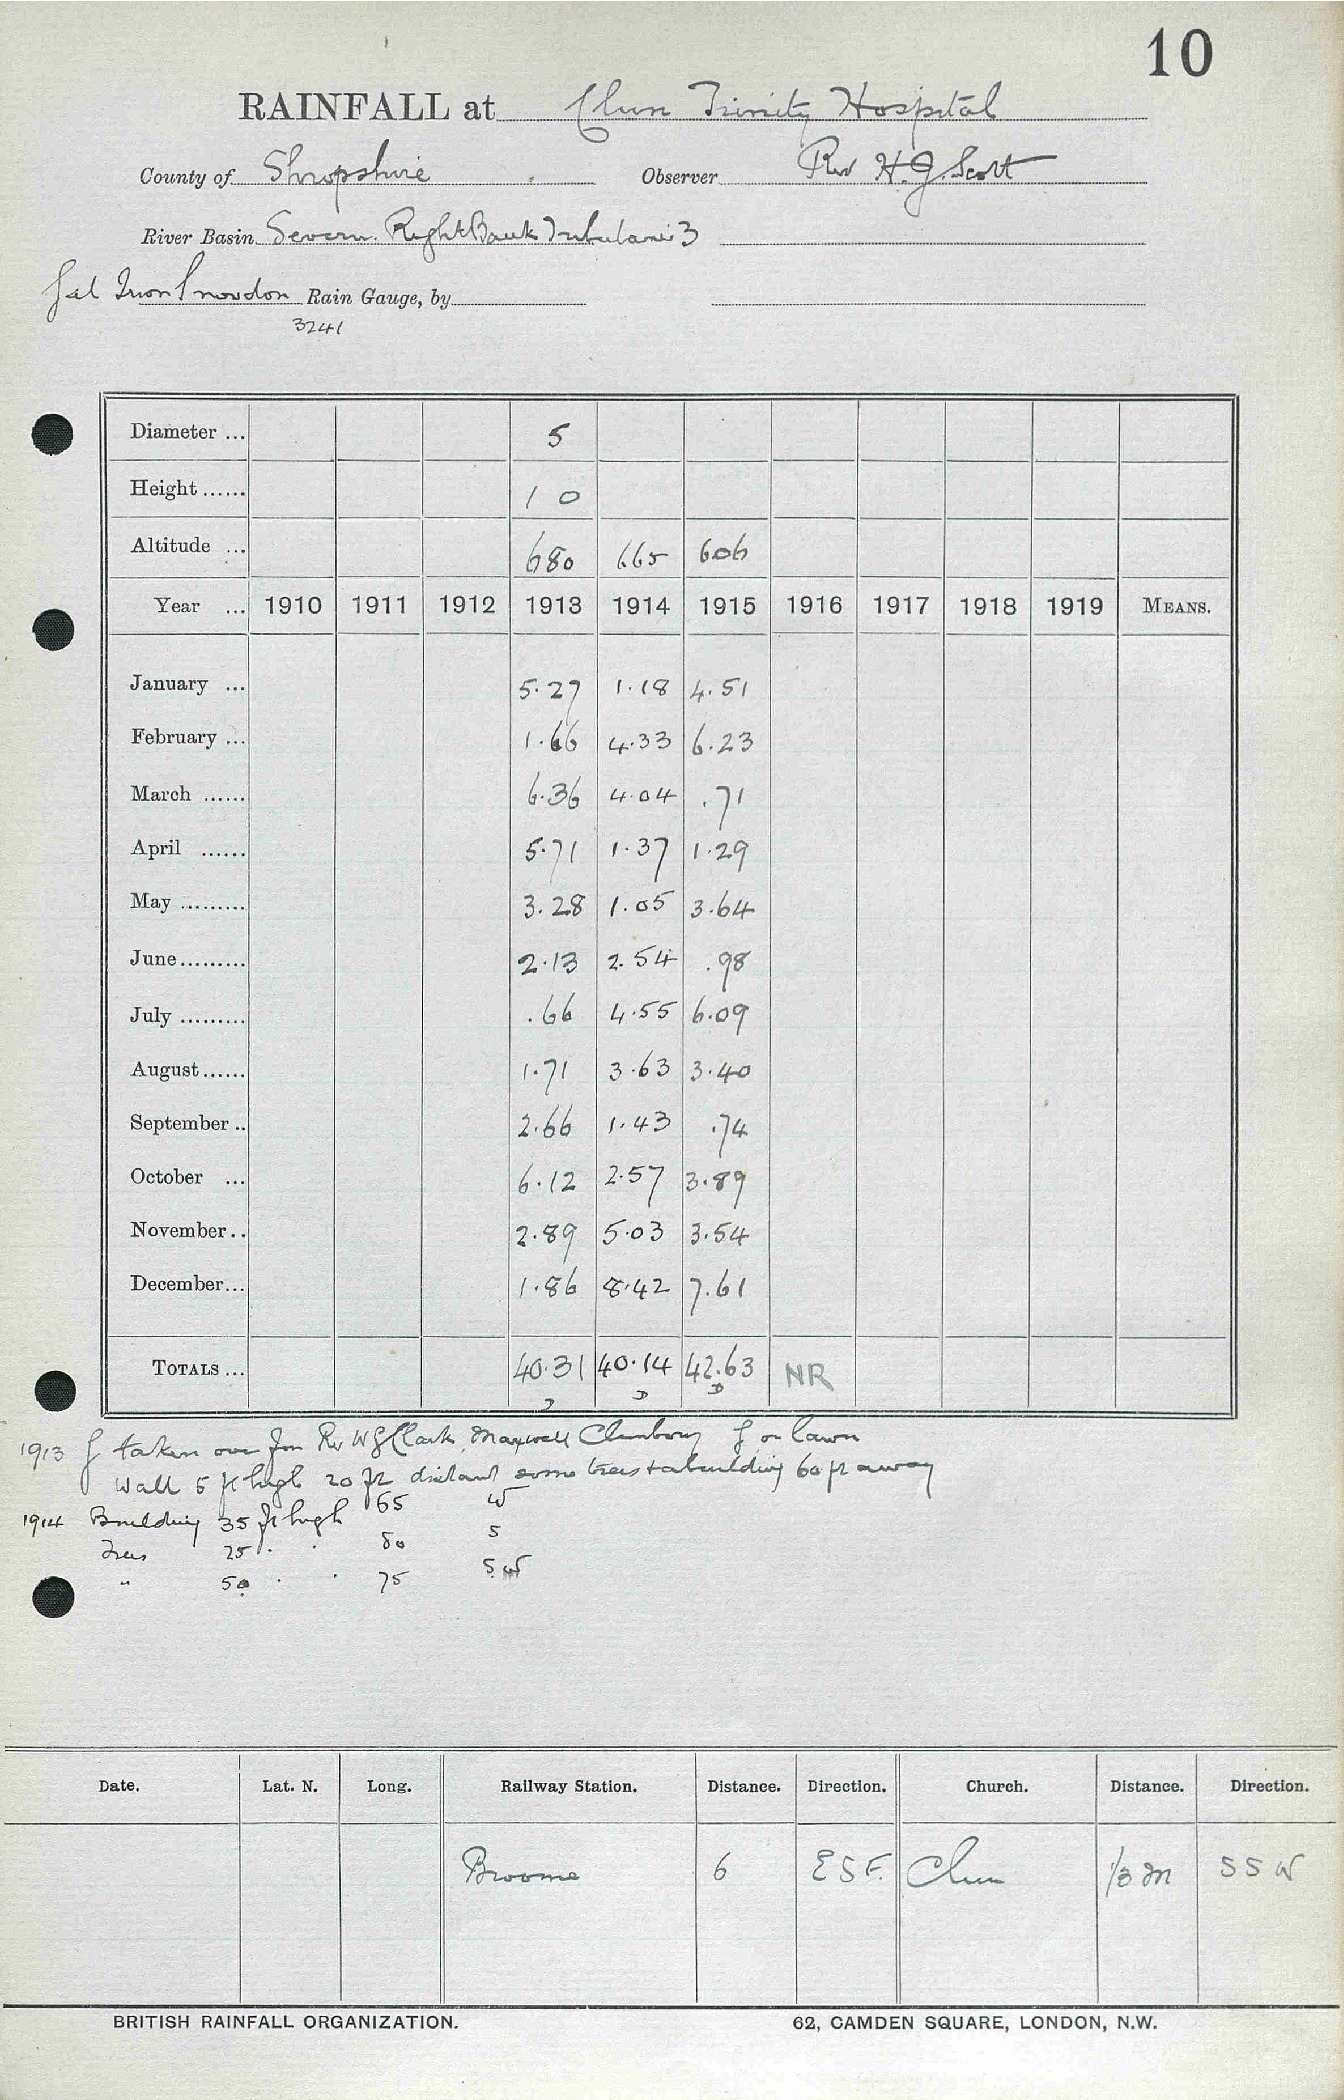 10
RAINFALL at Clun Trinity Hospital
County of Shropshire Observer Rev H. G. Scott
River Basin Severn. Right Bank Tributaries 3
Gal Iron Snowdon Rain Gauge, by
3241
Diameter ... 5
Height ...... 10
Altitude ... 680 665 606
Year ... 1910 1911 1912 1913 1914 1915 1916 1917 1918 1919 MEANS.
January ... 5.27 1.18 4.51
February ... 1.66 4.33 6.23
March ...... 6.36 4.04 .71
April ...... 5.71 1.37 1.29
May ......... 3.28 1.05 3.64
June......... 2.13 2.54 .98
July ......... .66 4.55 6.09
August...... 1.71 3.63 3.40
September .. 2.66 1.43 .74
October ... 6.12 2.57 3.89
November.. 2.89 5.03 3.54
December... 1.86 8.42 7.61
TOTALS ... 40.31 40.14 42.63 NR
D D D
1913 G taken over from Rev W G Clark, Maxwell Clunbury G on lawn
Wall 5 ft high 20 ft distant some trees + a building 60 ft away
1914 Building 35 ft high 65 W
Trees 25 " " 80 S
" 50 " " 75 SW
Date. Lat. N. Long. Railway Station. Distance. Direction. Church. Distance. Direction.
Broome 6 ESE Clun 1/3 m SSW
BRITISH RAINFALL ORGANIZATION. 62, CAMDEN SQUARE, LONDON, N.W.